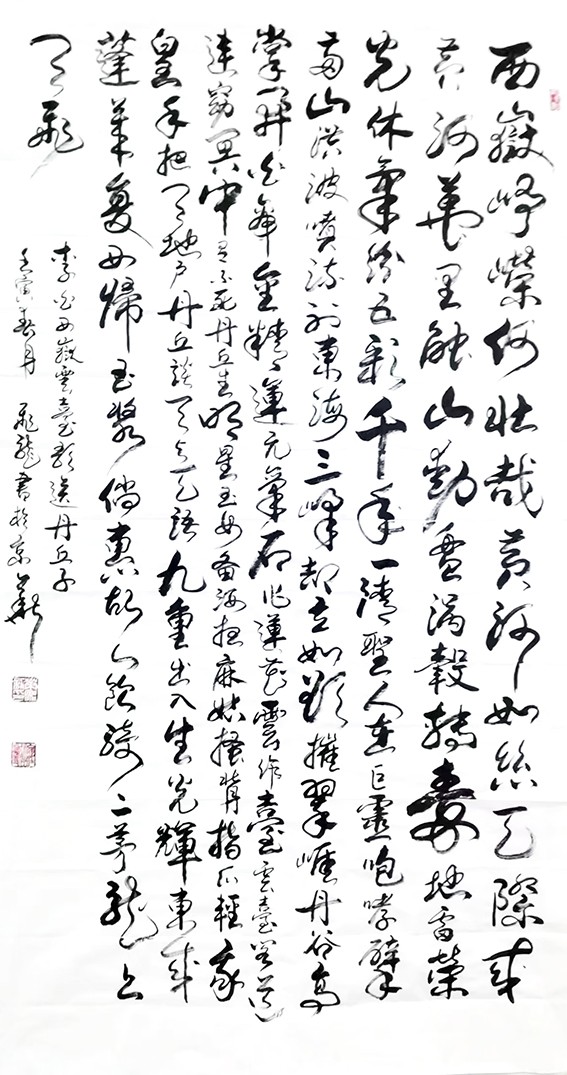 西嶽崢嶸何壯哉黃河如絲天際來
黃河萬里觸山動盤渦轂轉秦地雷榮
光休氣紛五彩千年一清聖人在巨靈咆哮擘
兩山洪波噴流射東海三峰却立如欲摧翠崖丹谷高
掌開白帝金精運元氣石作蓮花雲作臺雲臺閣道
連窈冥中有不死丹丘生明星玉女備洒掃麻姑搔背指爪輕我
皇手把天地戶丹丘談天與天語九重出入生光輝東來
蓬萊復西歸玉漿倘惠故人飲騎二茅龍上
天飛
李白西嶽雲臺歌送丹丘子
壬寅春月 飛龍書於京華